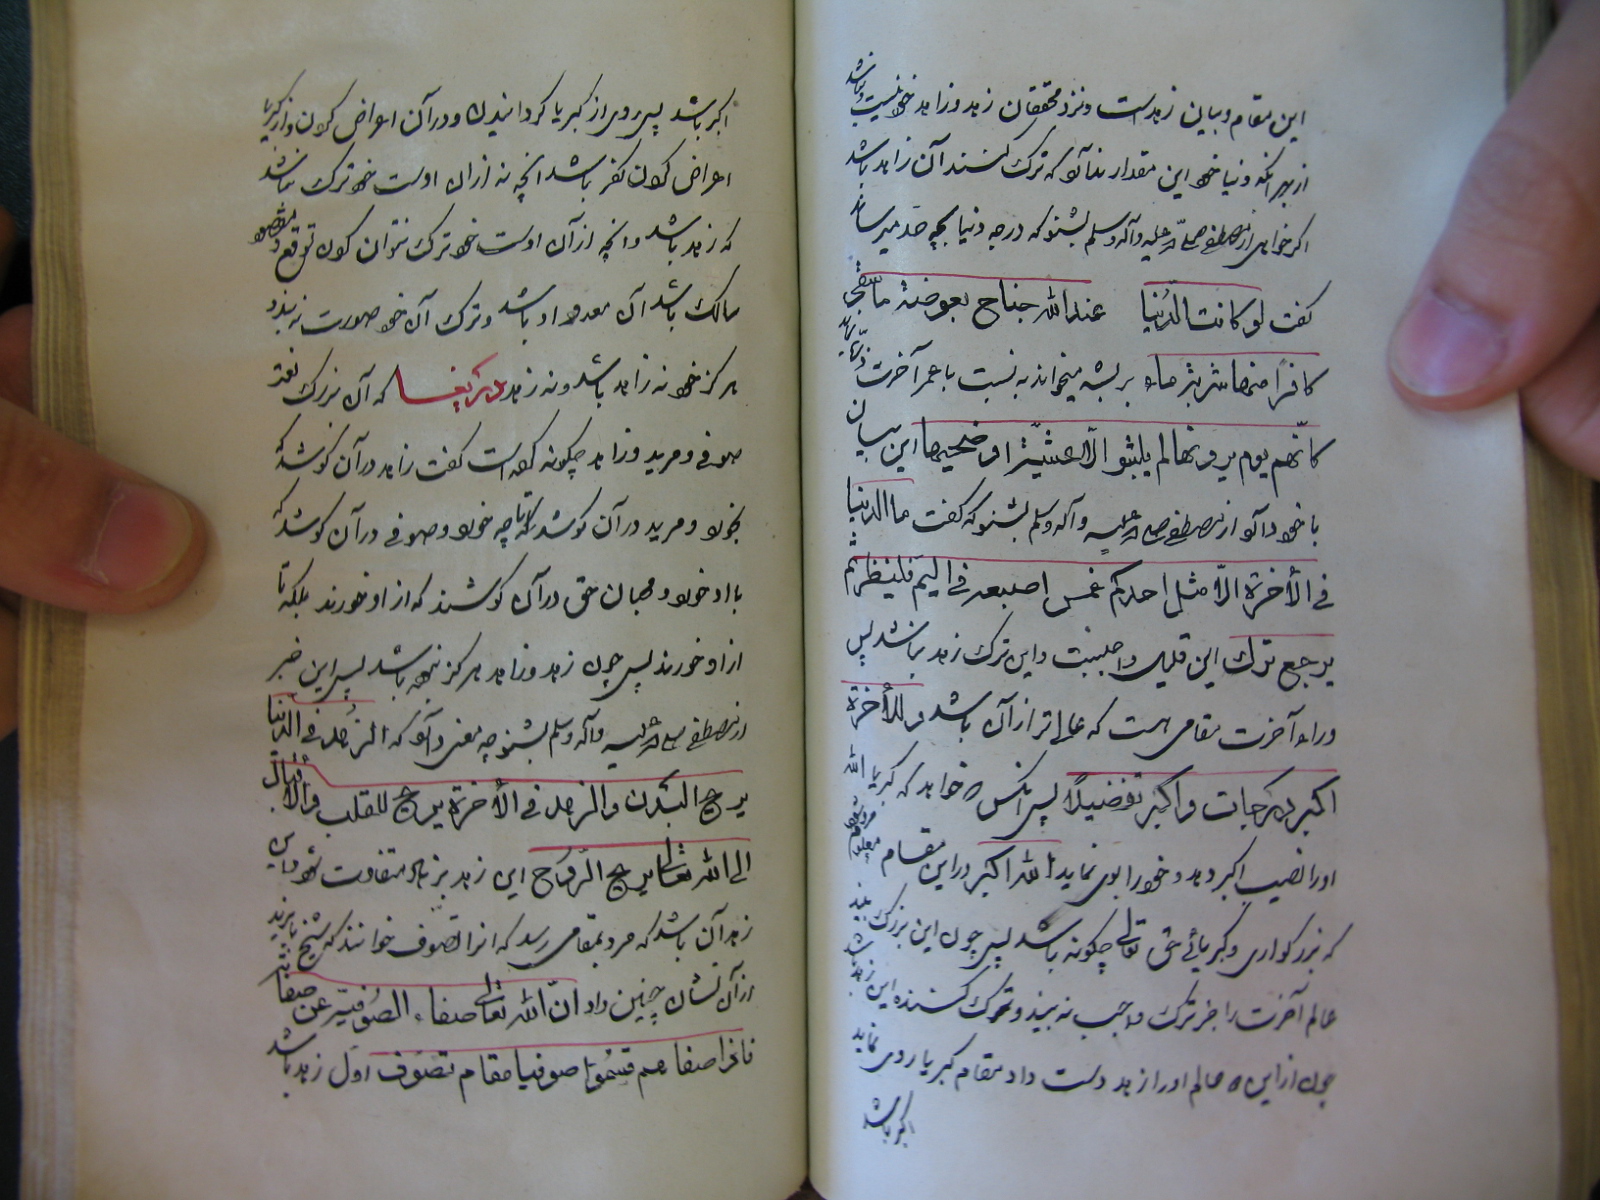 این مقام و بیان زهدست و نزد محققان زهد و زاهد خود نیست و نباشد
از بهر آنکه دنیا خود این مقدار نداند که ترک کنند آن زاهد باشد
اگر خواهی از مصطفی صلی الله علیه وآله وسلم بشنو که درجه دنیا بچه حد میرساند
گفت لو کانت الدنیا عند الله جناح بعوضة ما سقی
کافرا منها شربة ماء بر پشه میخواند به نسبت با عمر آخرت
کانهم یوم یرونها لم یلبثوا الا عشیة او ضحیها این بیان
با خود دارد از مصطفی صلی الله علیه وآله وسلم بشنو که گفت ما الدنیا
فی الأخرة الا مثل احدکم غمس اصبعه فی الیم فلینظر بم
یرجع ترک این قلیل واجبست و این ترک زهد نباشد پس
وراء آخرت مقامی هست که عالی تر از آن باشد وللأخرة
اکبر درجات و اکبر تفضیلا پس آنکس که خواهد که کبریا الله
اورا نصیب اکبر دهد و خود را بوی نماید الله اکبر در این مقام معلوم
که بزرگواری و کبریائی حق تعالی چگونه باشد پس چون این بزرگ بیند
عالم آخرت را جز ترک واجب نه بیند و ترک کننده این زاهد باشد
چون از این عالم اورا زهد دست داد مقام کبریا روی نماید
اکبر باشد
اکبر باشد پس روی از کبریا گردانیدن و در آن اعراض کردن و از کبریا
اعراض کردن کفر باشد آنچه نه ازان اوست خود ترک نباشد
که زهد باشد و آنچه ازآن اوست خود ترک نتوان کرد
مالک باشد آن معدود او باشد و ترک آن خود صورت نه بندد
هرگز خود نه زاهد باشد و نه زهد دریغا که آن بزرگ گفت
صوفی و مرید و زاهد چگونه گفته است گفت زاهد در آن کوشد که
نخورد و مرید در آن کوشد که تا چه خورد و صوفی در آن کوشد که
با او خورد و محبان حق در آن کوشند که از او خورند بلکه تا
ازو خورند پس چون زهد و زاهد هرگز نبود باشد پس این خبر
از مصطفی صلی الله علیه وآله وسلم بشنو چه معنی دارد که الزهد فی الدنیا
یریح البدن والزهد فی الأخرة یریح للقلب والاقبال
الی الله تعالی یریح الروح این زهد بر نهاد متفاوت شود و این
زهد آن باشد که مرد بمقامی رسد که انرا تصوف خوانند که شیخ بایزید
ازآن نشان چنین داد ان الله تعالی صفاء الصوفیة عن صفاته
فاذا صفا هم فسموا صوفیا مقام تصوف اول زهد باشد